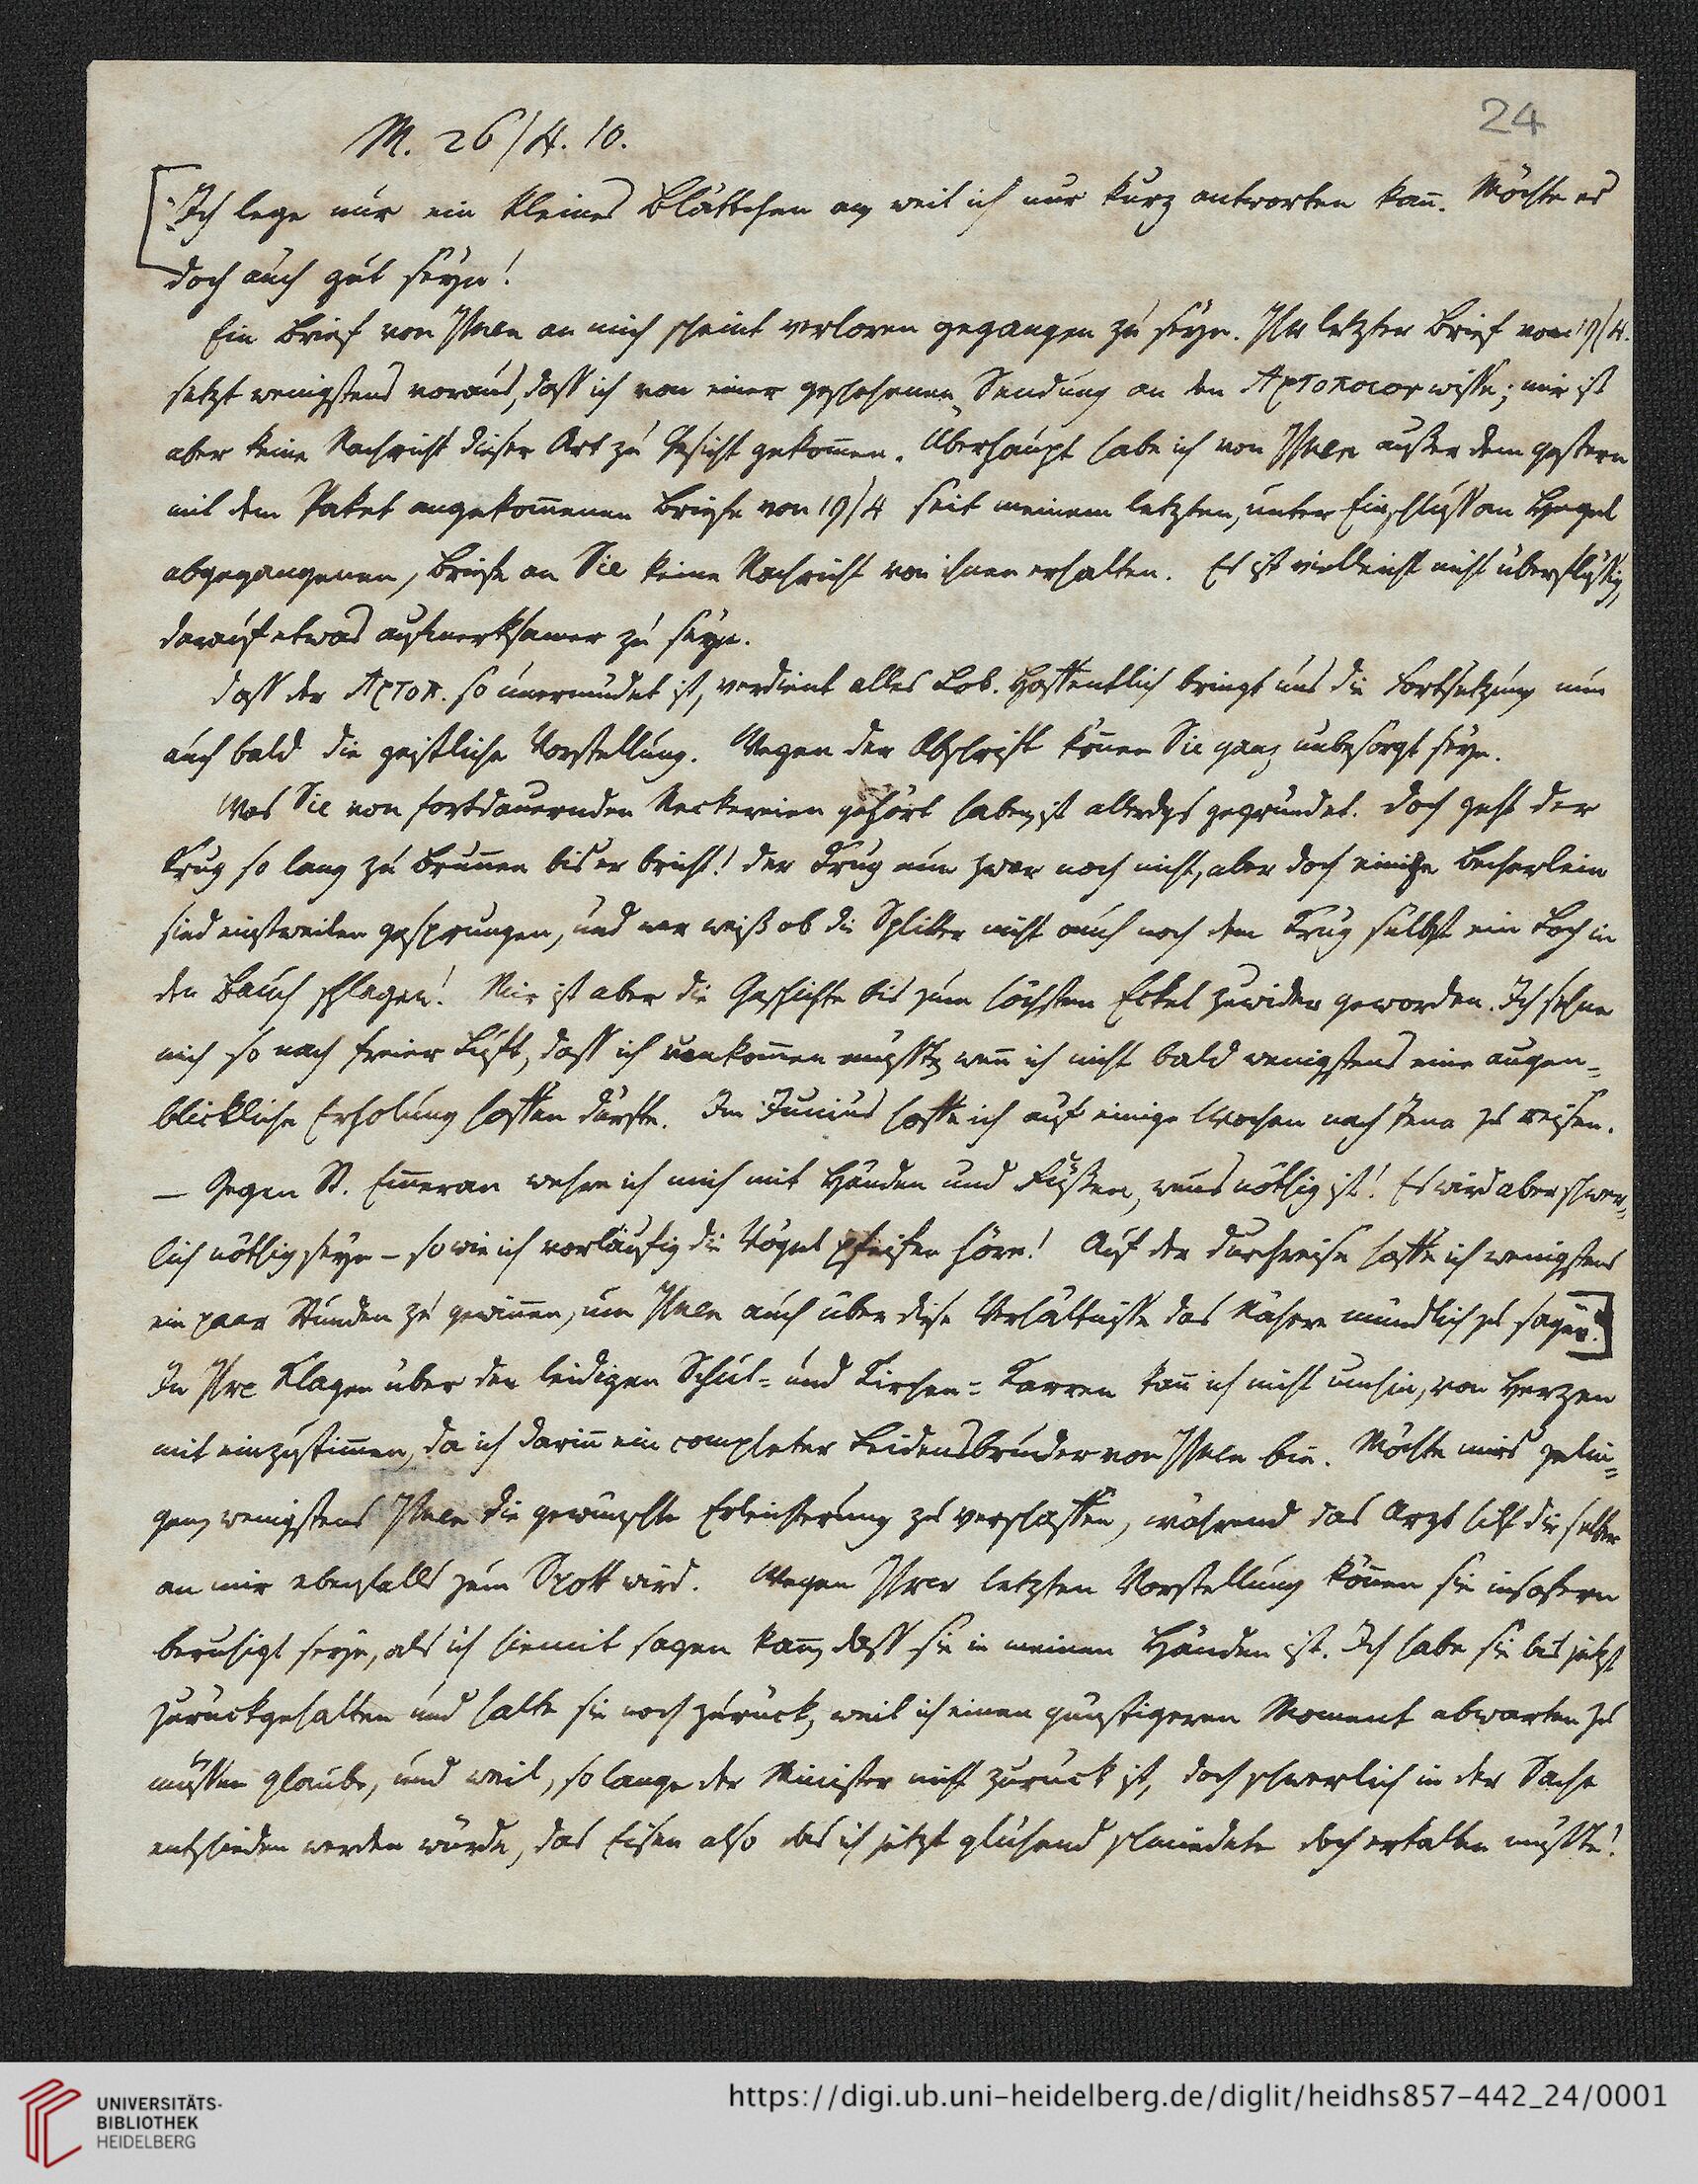 24
M. 26/4. 10.
Ich lege nur ein kleines Blättchen an, weil ich nur kurz antworten kan̄. Möchte es
doch auch gut seyn!
Ein Brief von Ihnen an mich scheint verloren gegangen zu seyn. Ihr letzter Brief vom 19/4.
setzt wenigstens voraus, dass ich von einer geschehenen Sendung an den Αρτοποιος wisse; mir ist
aber keine Nachricht dieser Art zu Gesicht gekom̄en. Überhaupt habe ich von Ihnen außer dem gestern
mit dem Paket angekom̄enen Briefe von 19/4 seit meinem letzten, unter Einschluss an Hegel
abgegangenen, Briefe an Sie keine Nachricht von ihnen erhalten. Es ist vielleicht nicht überflüssig,
darauf etwas aufmerksamer zu seyn.
Dass der Αρτοπ. so unermüdet ist, verdient alles Lob. Hoffentlich bringt uns die Fortsetzung nun
auch bald die geistliche Vorstellung. Wegen der Abschrift kön̄en Sie ganz unbesorgt seyn.
Was Sie von fortdauernden Neckereien gehört haben, ist allerdgs gegründet. Doch geht der
Krug so lang zu Brun̄en bis er bricht! Der Krug nun zwar noch nicht, aber doch einige Becherlein
sind einstweilen gesprungen, und wer weiß ob die Splitter nicht auch noch dem Krug selbst ein Loch in
den Bauch schlagen! Mir ist aber die Geschichte bis zum höchsten Eckel zuwider geworden. Ich sehne
mich so nach freier Luft, dass ich umkom̄en müsste, wen̄ ich nicht bald wenigstens eine augen=
blickliche Erholung hoffen dürfte. Im Junius hoffe ich auf einige Wochen nach Jena zu reisen.
— Gegen St. Em̄eran wehre ich mich mit Händen und Füßen, wens nöthig ist! Es wird aber schwer=
lich nöthig seyn – so wie ich vorläufig die Vögel pfeifen höre! Auf der Durchreise hoffe ich wenigstens
ein paar Stunden zu gewin̄en, um Ihnen auch über diese Verhältnisse das Nähere mündlich zu sagen.
In Ihre Klagen über den leidigen Schul= und Kirchen=Karren kan̄ ich nicht umhin, von Herzen
mit einzustim̄en, da ich darin̄ ein completer Leidensbruder von Ihnen bin. Möchte mirs gelin=
gen, wenigstens Ihnen die gewünschte Erleichterung zu verschaffen, während das Arzt hilf dir selber
an mir ebenfalls zum Spott wird. Wegen Ihrer letzten Vorstellung kön̄en sie insofern
beruhigt seyn, als ich hiemit sagen kan̄, dass sie in meinen Händen ist. Ich habe sie bis jetzt
zurückgehalten und halte sie noch zurück, weil ich einen günstigeren Moment abwarten zu
müssen glaube, und weil, so lange der Minister nicht zurück ist, doch schwerlich in der Sache
entschieden werden würde, das Eisen also das ich jetzt glühend schmiedete doch erkalten müsste!
UNIVERSITÄTS-
BIBLIOTHEK
HEIDELBERG
https://digi.ub.uni-heidelberg.de/diglit/heidhs857-442_24/0001